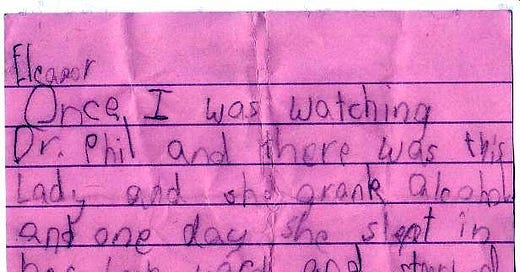 Eleanor
Once, I was watching
Dr. Phil and there was this
Lady and she drank alcohol
and one day she slept in
her and